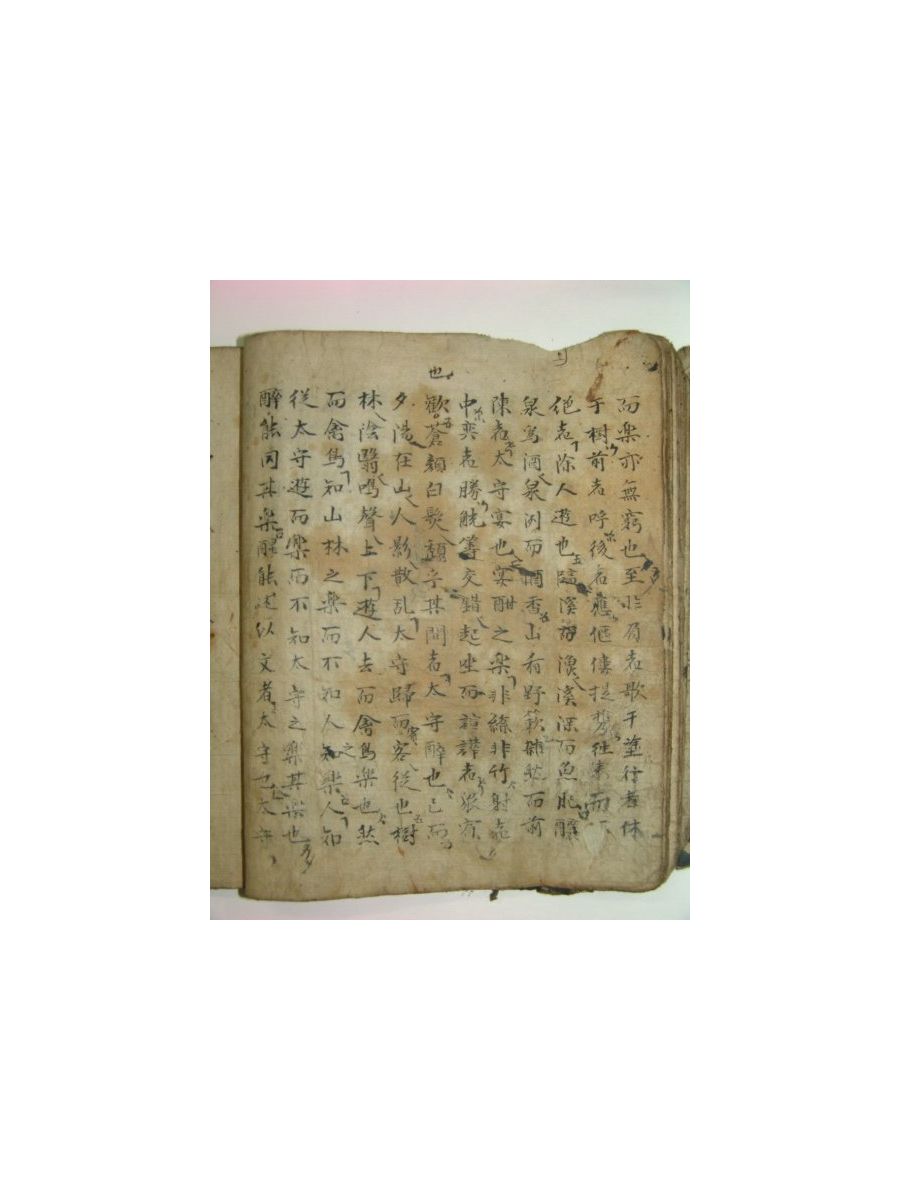 而楽亦無窮也至於肩者歌于塗行者休
于樹前者呼後者應傴僂提携往来而不
絕者滁人遊也臨溪而漁溪深而魚肥釀
泉為酒泉冽而酒香山肴野蔌雜然而前
陳者太守宴也宴酣之楽非絲非竹射者
中奕者勝觥籌交錯起坐而諠譁者衆賓
歡也蒼顔白髮頹乎其間者太守醉也已而
夕陽在山人影散乱太守歸而賓客從也樹
林陰翳鳴聲上下遊人去而禽鳥楽也然
而禽鳥知山林之楽而不知人之楽人知
從太守遊而楽而不知太守之楽其楽也
醉能同其楽醒能述以文者太守也太守